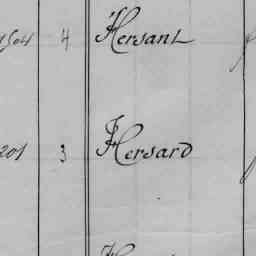 4 Hersant
201 3 Hersard